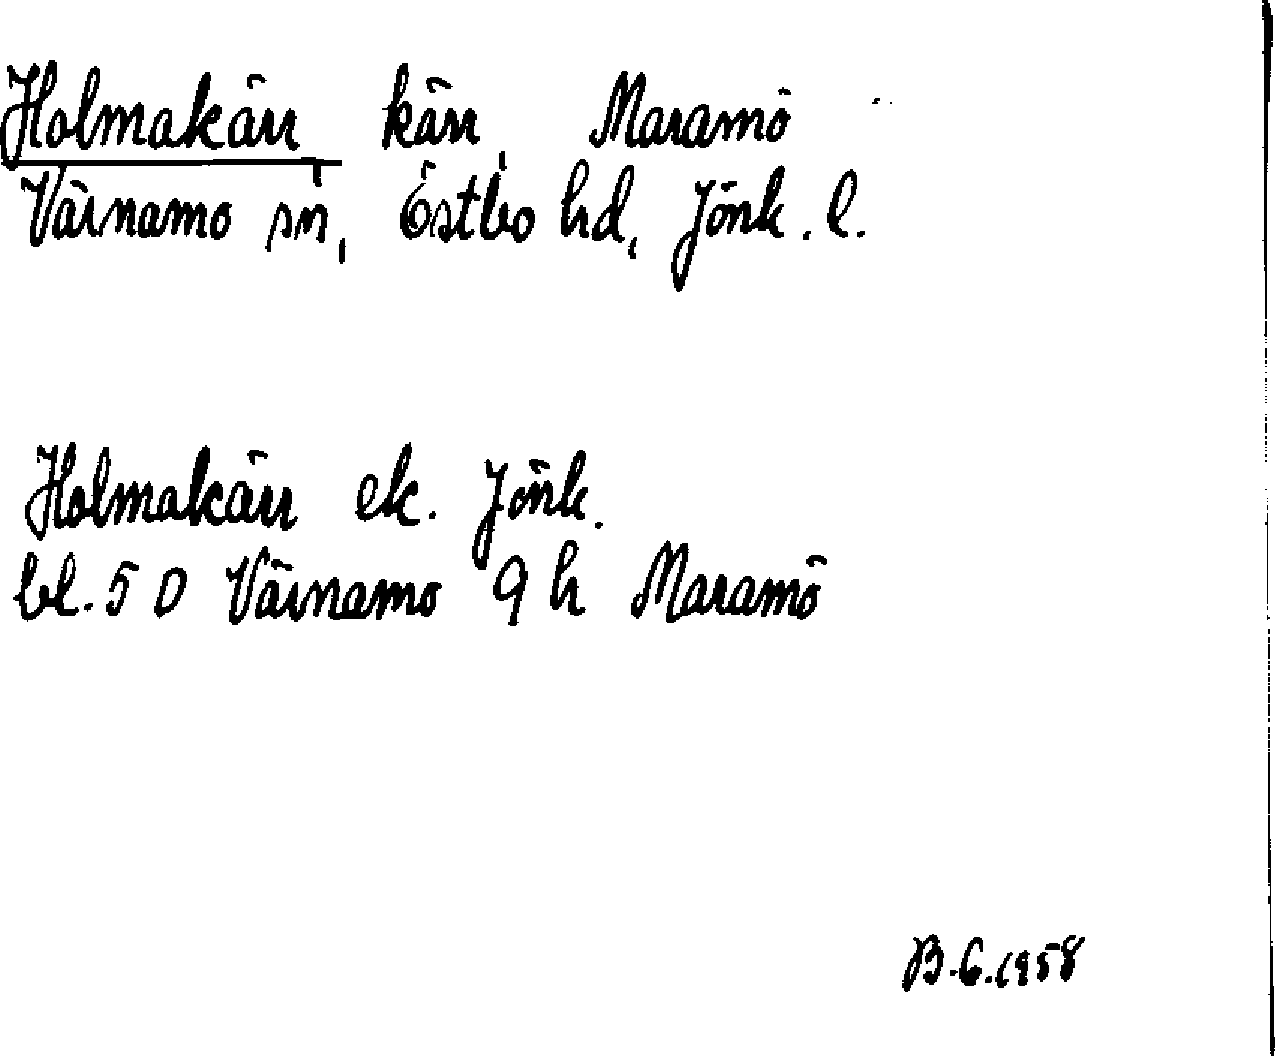 Holmakärr, kärr, Maramö
Värnamo sn, Östbo hd, Jönk. l.
Holmakärr ek. Jönk.
bl. 5 D Värnamo 9 h Maramö
B.G. 1958